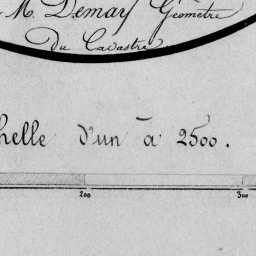 M. Demay Géometre
Du Cadastre
helle d'un à 2500.
200 300